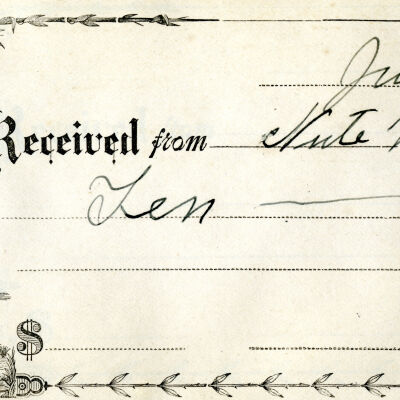 Received from Nute
Ten —
$